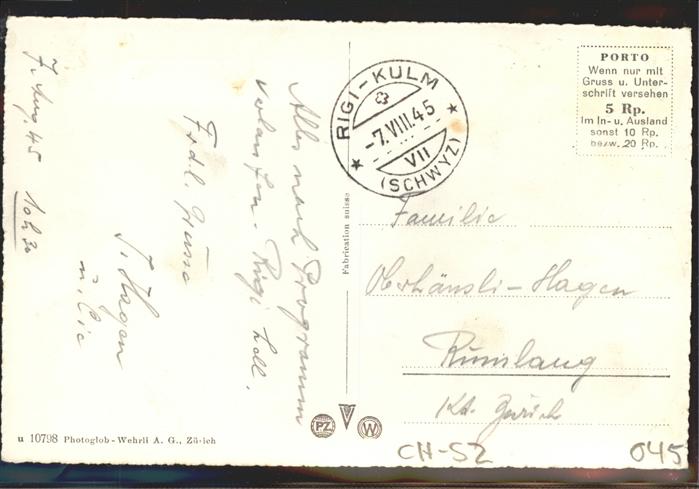 7. Aug. 45 10h30
Alles nach Programm
verlaufen. Rigi hell.
Frdl. Grüsse
J. Hagen
u. Cie
Fabrication suisse
RIGI-KULM
-7.VIII.45
VII
(SCHWYZ)
PORTO
Wenn nur mit
Gruss u. Unter-
schrift versehen
5 Rp.
Im In- u. Ausland
sonst 10 Rp.
bezw. 20 Rp.
Familie
Oberhänsli-Hagen
Rümlang
Kt. Zürich
PZ
W
u 10798 Photoglob-Wehrli A. G., Zürich
CH-SZ
045